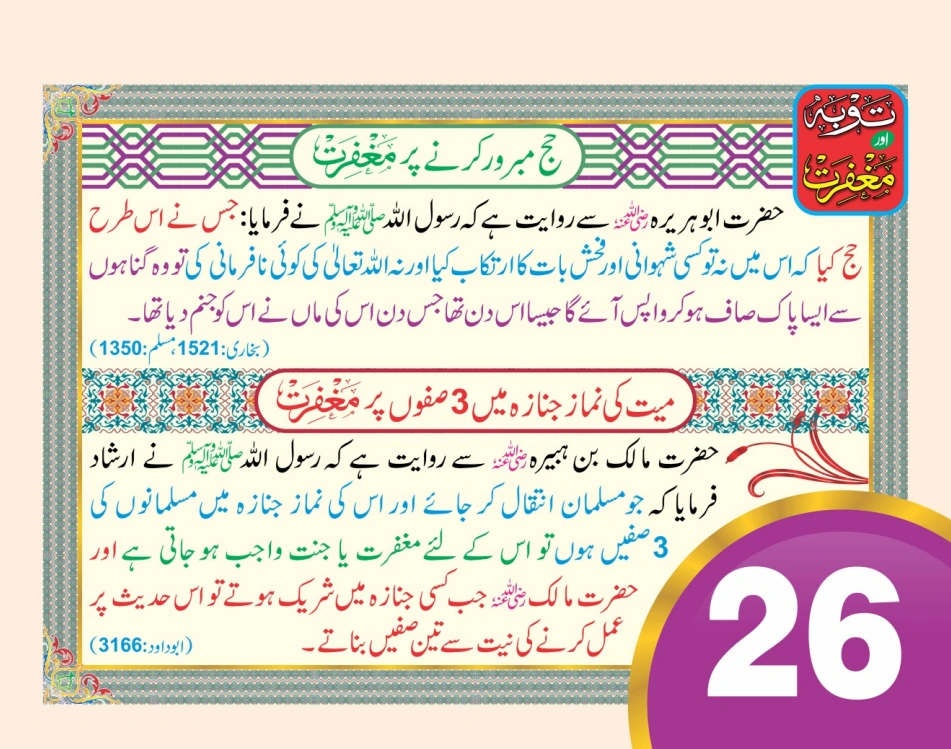 توبہ
اور
مغفرت
حج مبرور کرنے پر مغفرت
حضرت ابوہریرہ رضی اللہ عنہ سے روایت ہے کہ رسول اللہ صلی اللہ علیہ وآلہ وسلم نے فرمایا: جس نے اس طرح
حج کیا کہ اس میں نہ تو کسی شہوانی اور فحش بات کا ارتکاب کیا اور نہ اللہ تعالیٰ کی کوئی نافرمانی کی تو وہ گناہوں
سے ایسا پاک صاف ہو کر واپس آئے گا جیسا اس دن تھا جس دن اس کی ماں نے اس کو جنم دیا تھا۔
(بخاری:1521، مسلم:1350)
میت کی نماز جنازہ میں 3 صفوں پر مغفرت
حضرت مالک بن ہبیرہ رضی اللہ عنہ سے روایت ہے کہ رسول اللہ صلی اللہ علیہ وآلہ وسلم نے ارشاد
فرمایا کہ جو مسلمان انتقال کر جائے اور اس کی نماز جنازہ میں مسلمانوں کی
3 صفیں ہوں تو اس کے لئے مغفرت یا جنت واجب ہو جاتی ہے اور
حضرت مالک رضی اللہ عنہ جب کسی جنازہ میں شریک ہوتے تو اس حدیث پر
عمل کرنے کی نیت سے تین صفیں بناتے۔
(ابوداود:3166)
26